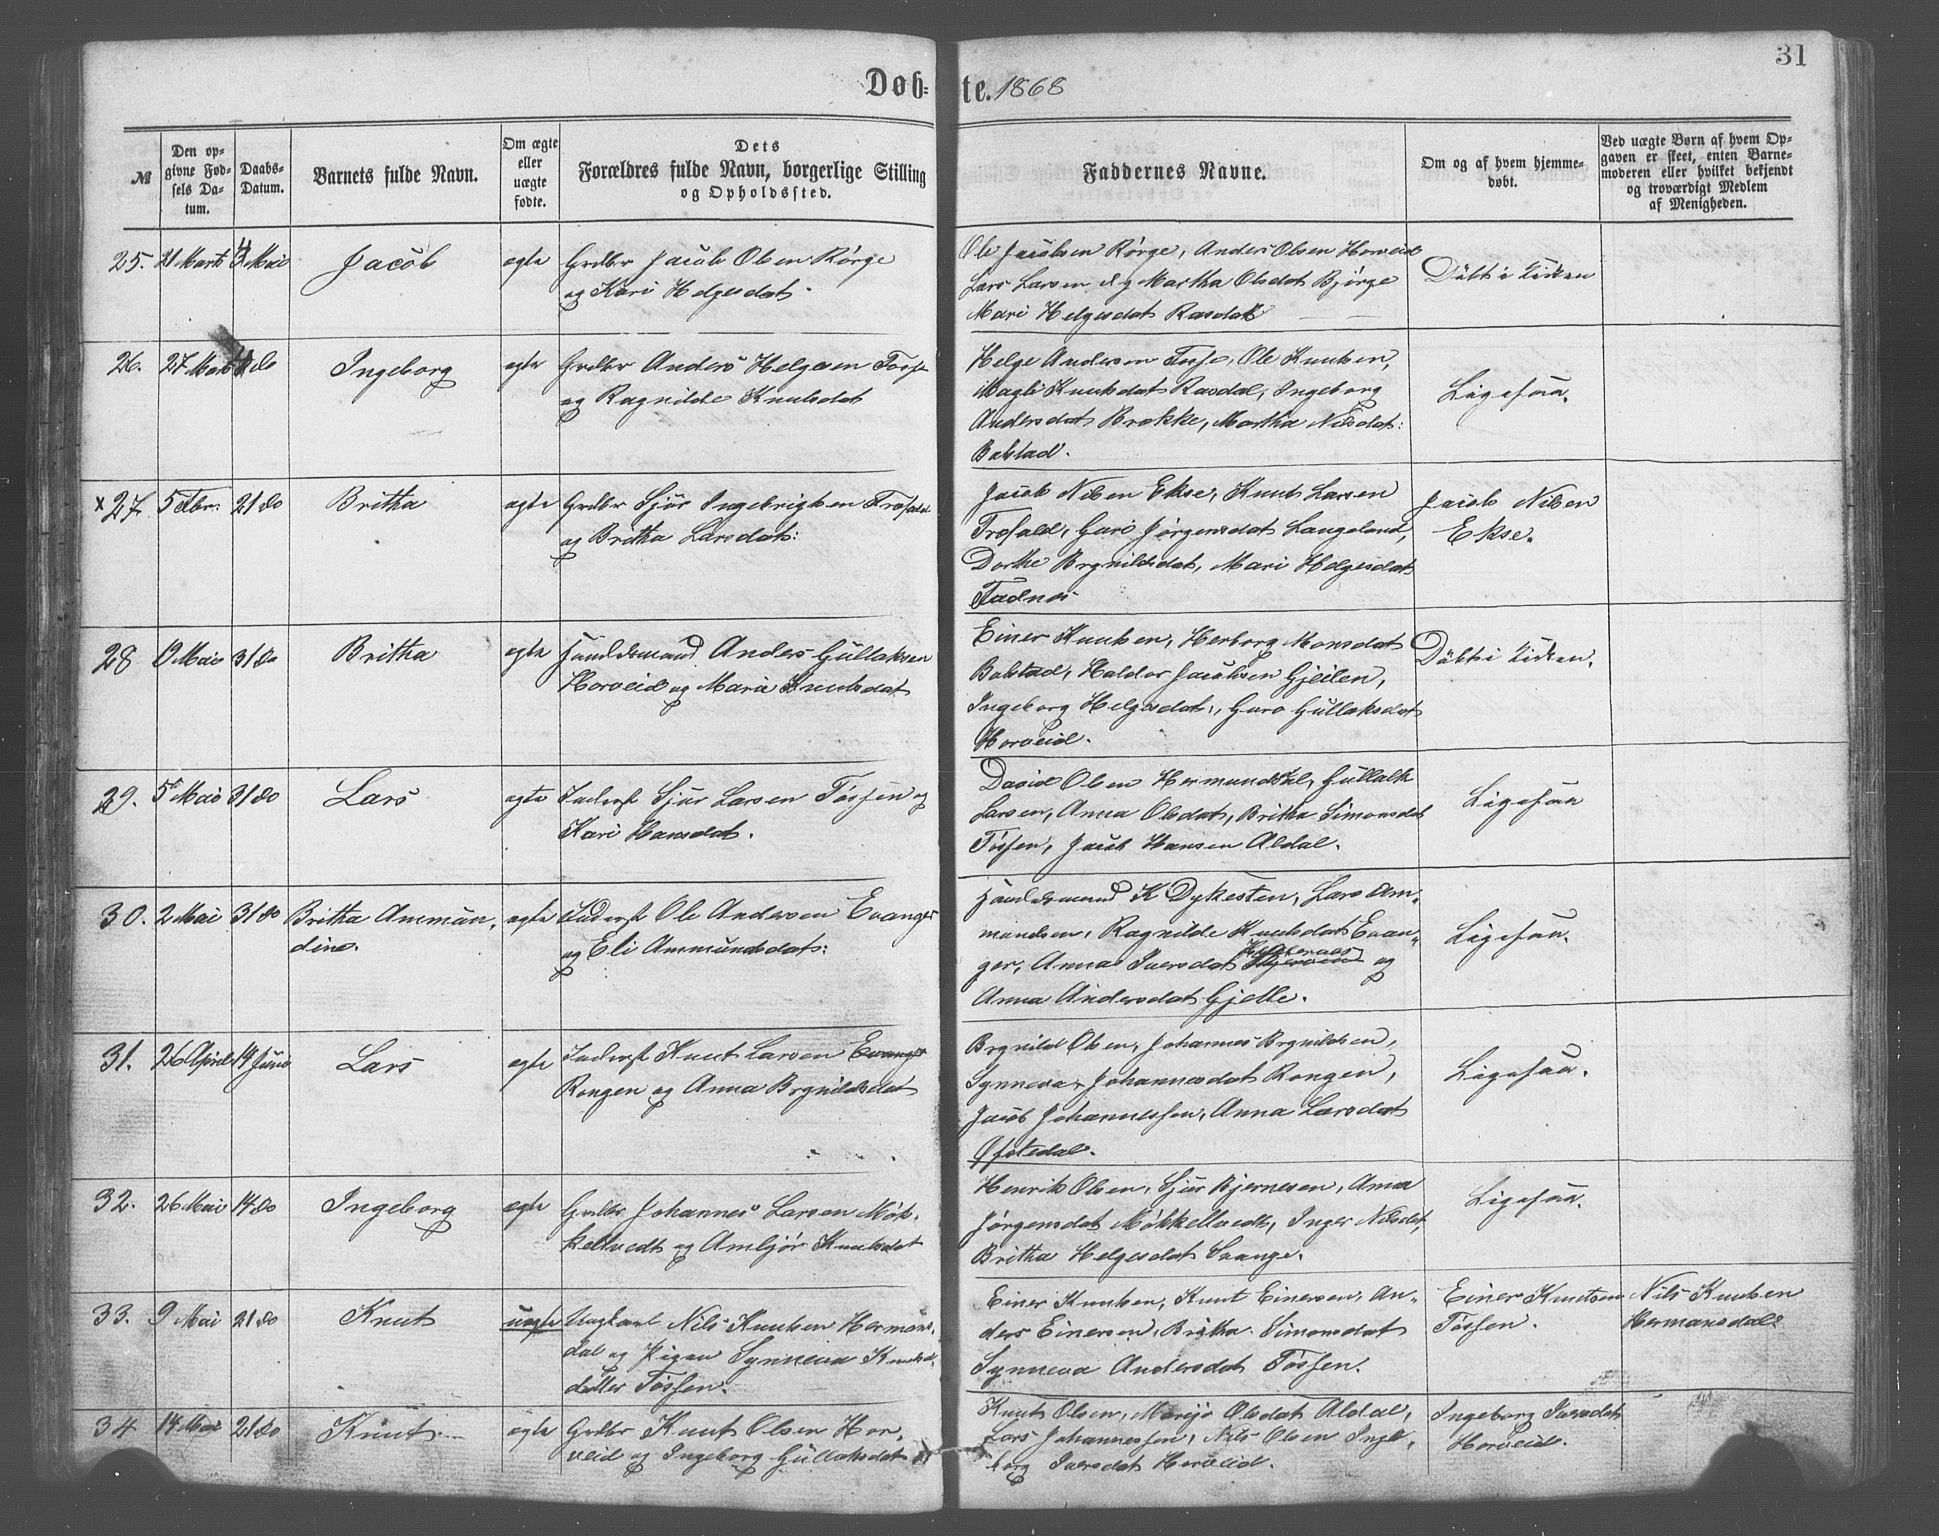 31
Døb=te. 1868
№
Den op-
givne Fød-
sels Da-
tum.
Daabs-
Datum.
Barnets fulde Navn.
Om ægte
eller
uægte
fødte.
Dets
Forældres fulde Navn, borgerlige Stilling
og Opholdssted.
Faddernes Navne.
Om og af hvem hjemme-
døbt.
Ved uægte Børn af hvem Op-
gaven er skeet, enten Barne-
moderen eller hvilket bekjendt
og troværdigt Medlem
af Menigheden.
25. 21 Marts 3 Mai Jacob egte Grdbr Jacob Olsen Rørge
og Kari Helgesdat.
Ole Jacobsen Rørge, Anders Olsen Horveid
Lars Larsen og Martha Olsdat Bjørge
Mari Helgesdat Rasdal
Døbt i Kirken
26. 27 Marts do Ingeborg egte Grdbr Anders Helgesen Fosse
og Ragnilde Knutsdat
Helge Andersen Fosse, Ole Knutsen,
Magli Knutsdat Rasdal, Ingeborg
Andersdat Brekke, Martha Nilsdat:
Bolstad.
Ligesaa.
x 27. 5 Febr. 21 do Britha egte Grdbr Sjur Ingebrigtsen Trofald
og Britha Larsdat:
Jacob Nilsen Ekse, Knut Larsen
Trofald, Guri Jørgensdat Langeland,
Dorthe Brynildsdat, Mari Helgesdat
Fadnes
Jacob Nilsen
Ekse.
28 Mai 31 do Britha egte Huusmand Anders Gullaksen
Horveid og Marie Knutsdat
Einer Knutsen, Herborg Monsdat
Bolstad, Haldor Jacobsen Gjeilen,
Ingeborg Helgesdat:, Guro Gullaksdat
Horveid.
Døbt i Kirken.
29. 5 Mai 31 do Lars egte Inderst Sjur Larsen Fosſen og
Kari Hansdat.
David Olsen Hermundsdal, Gullak
Larsen, Anna Olsdat, Britha Simonsdat
Fosſen, Jacob Hansen Aldal.
Ligesaa
30. 2 Mai 31 do Britha Ammun,
dine.
egte Inderst Ole Andersen Evanger
og Eli Ammundsdat:
Huusmand K Dykesten, Lars Am-
mundsen, Ragnilde Knutsdat Evan-
ger, Anna Iversdat og
Anna Andersdat Gjelle.
Ligesaa.
31. 26 April 14 Juni Lars egte Inderst Knut Larsen Evanger
Rongen og Anna Brynildsdat
Brynild Olsen, Johannes Brynildsen,
Synneva Johannesdat Rongen,
Jacob Johannesſen, Anna Larsdat
Øfstedal.
Ligesaa.
32. 26 Mai 14 do Ingeborg egte Grdbr Johannes Larsen Møk-
kelvedt og Ambjør Knutsdat
Henrik Olsen, Sjur Bjernesen, Anna
Jørgensdat Møkkelvedt, Inger Nilsdat,
Britha Helgesdat Svange.
Ligesaa.
33. 9 Mai 21 do Knut uegte Ungkarl Nils Knutsen Hermans-
dal og Pigen Synneva Knuts-
datter Fosſen.
Einer Knutsen, Knut Einersen, An-
ders Einersen, Britha Simonsdat
Synneva Andersdat Fosſen.
Einer Knutsen
Fosſen.
Nils Knutsen
Hermansdal
34 14 Mai 21 do Knut egte Grdbr Knut Olsen Hor-
veid og Ingeborg Gullaksdat
Knut Olsen, Marije Olsdat Aldal,
Lars Johannesſen, Nils Olsen Inge-
borg Iversdat Horveid.
Ingeborg Iversdat
Horveid.